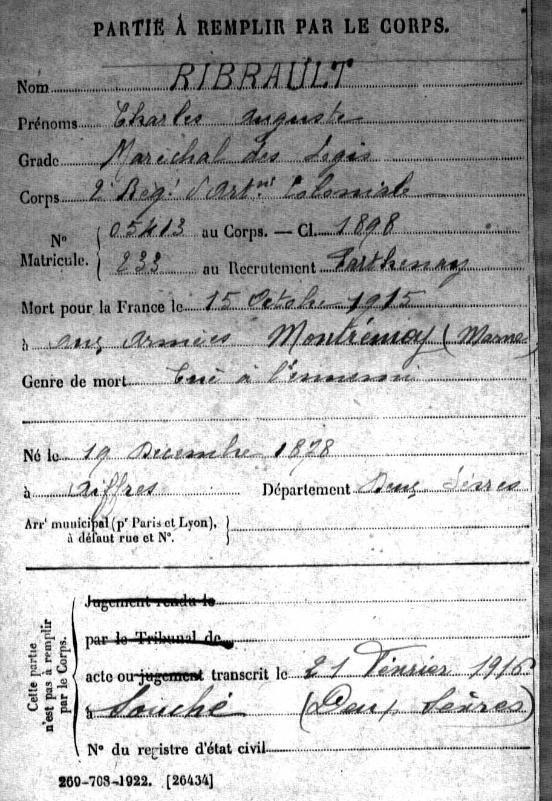 PARTIE À REMPLIR PAR LE CORPS.
Nom RIBRAULT
Prénoms Charles Auguste
Grade Maréchal des Logis
Corps 2e Regt d'Artrie Coloniale
N° Matricule. { 05413 au Corps. — Cl. 1898
233 au Recrutement Parthenay
Mort pour la France le 15 Octobre 1915
à aux Armées Montrémoy (Marne)
Genre de mort tué à l'ennemi
Né le 19 Décembre 1878
à Aiffres Département Deux Sèvres
Arrt municipal (pr Paris et Lyon),
à défaut rue et N°.
Cette partie
n'est pas à remplir
par le Corps.
Jugement rendu le
par le Tribunal de
acte ou jugement transcrit le 21 Février 1916
à Souché (Deux Sèvres)
N° du registre d'état civil
269-708-1922. [26434]